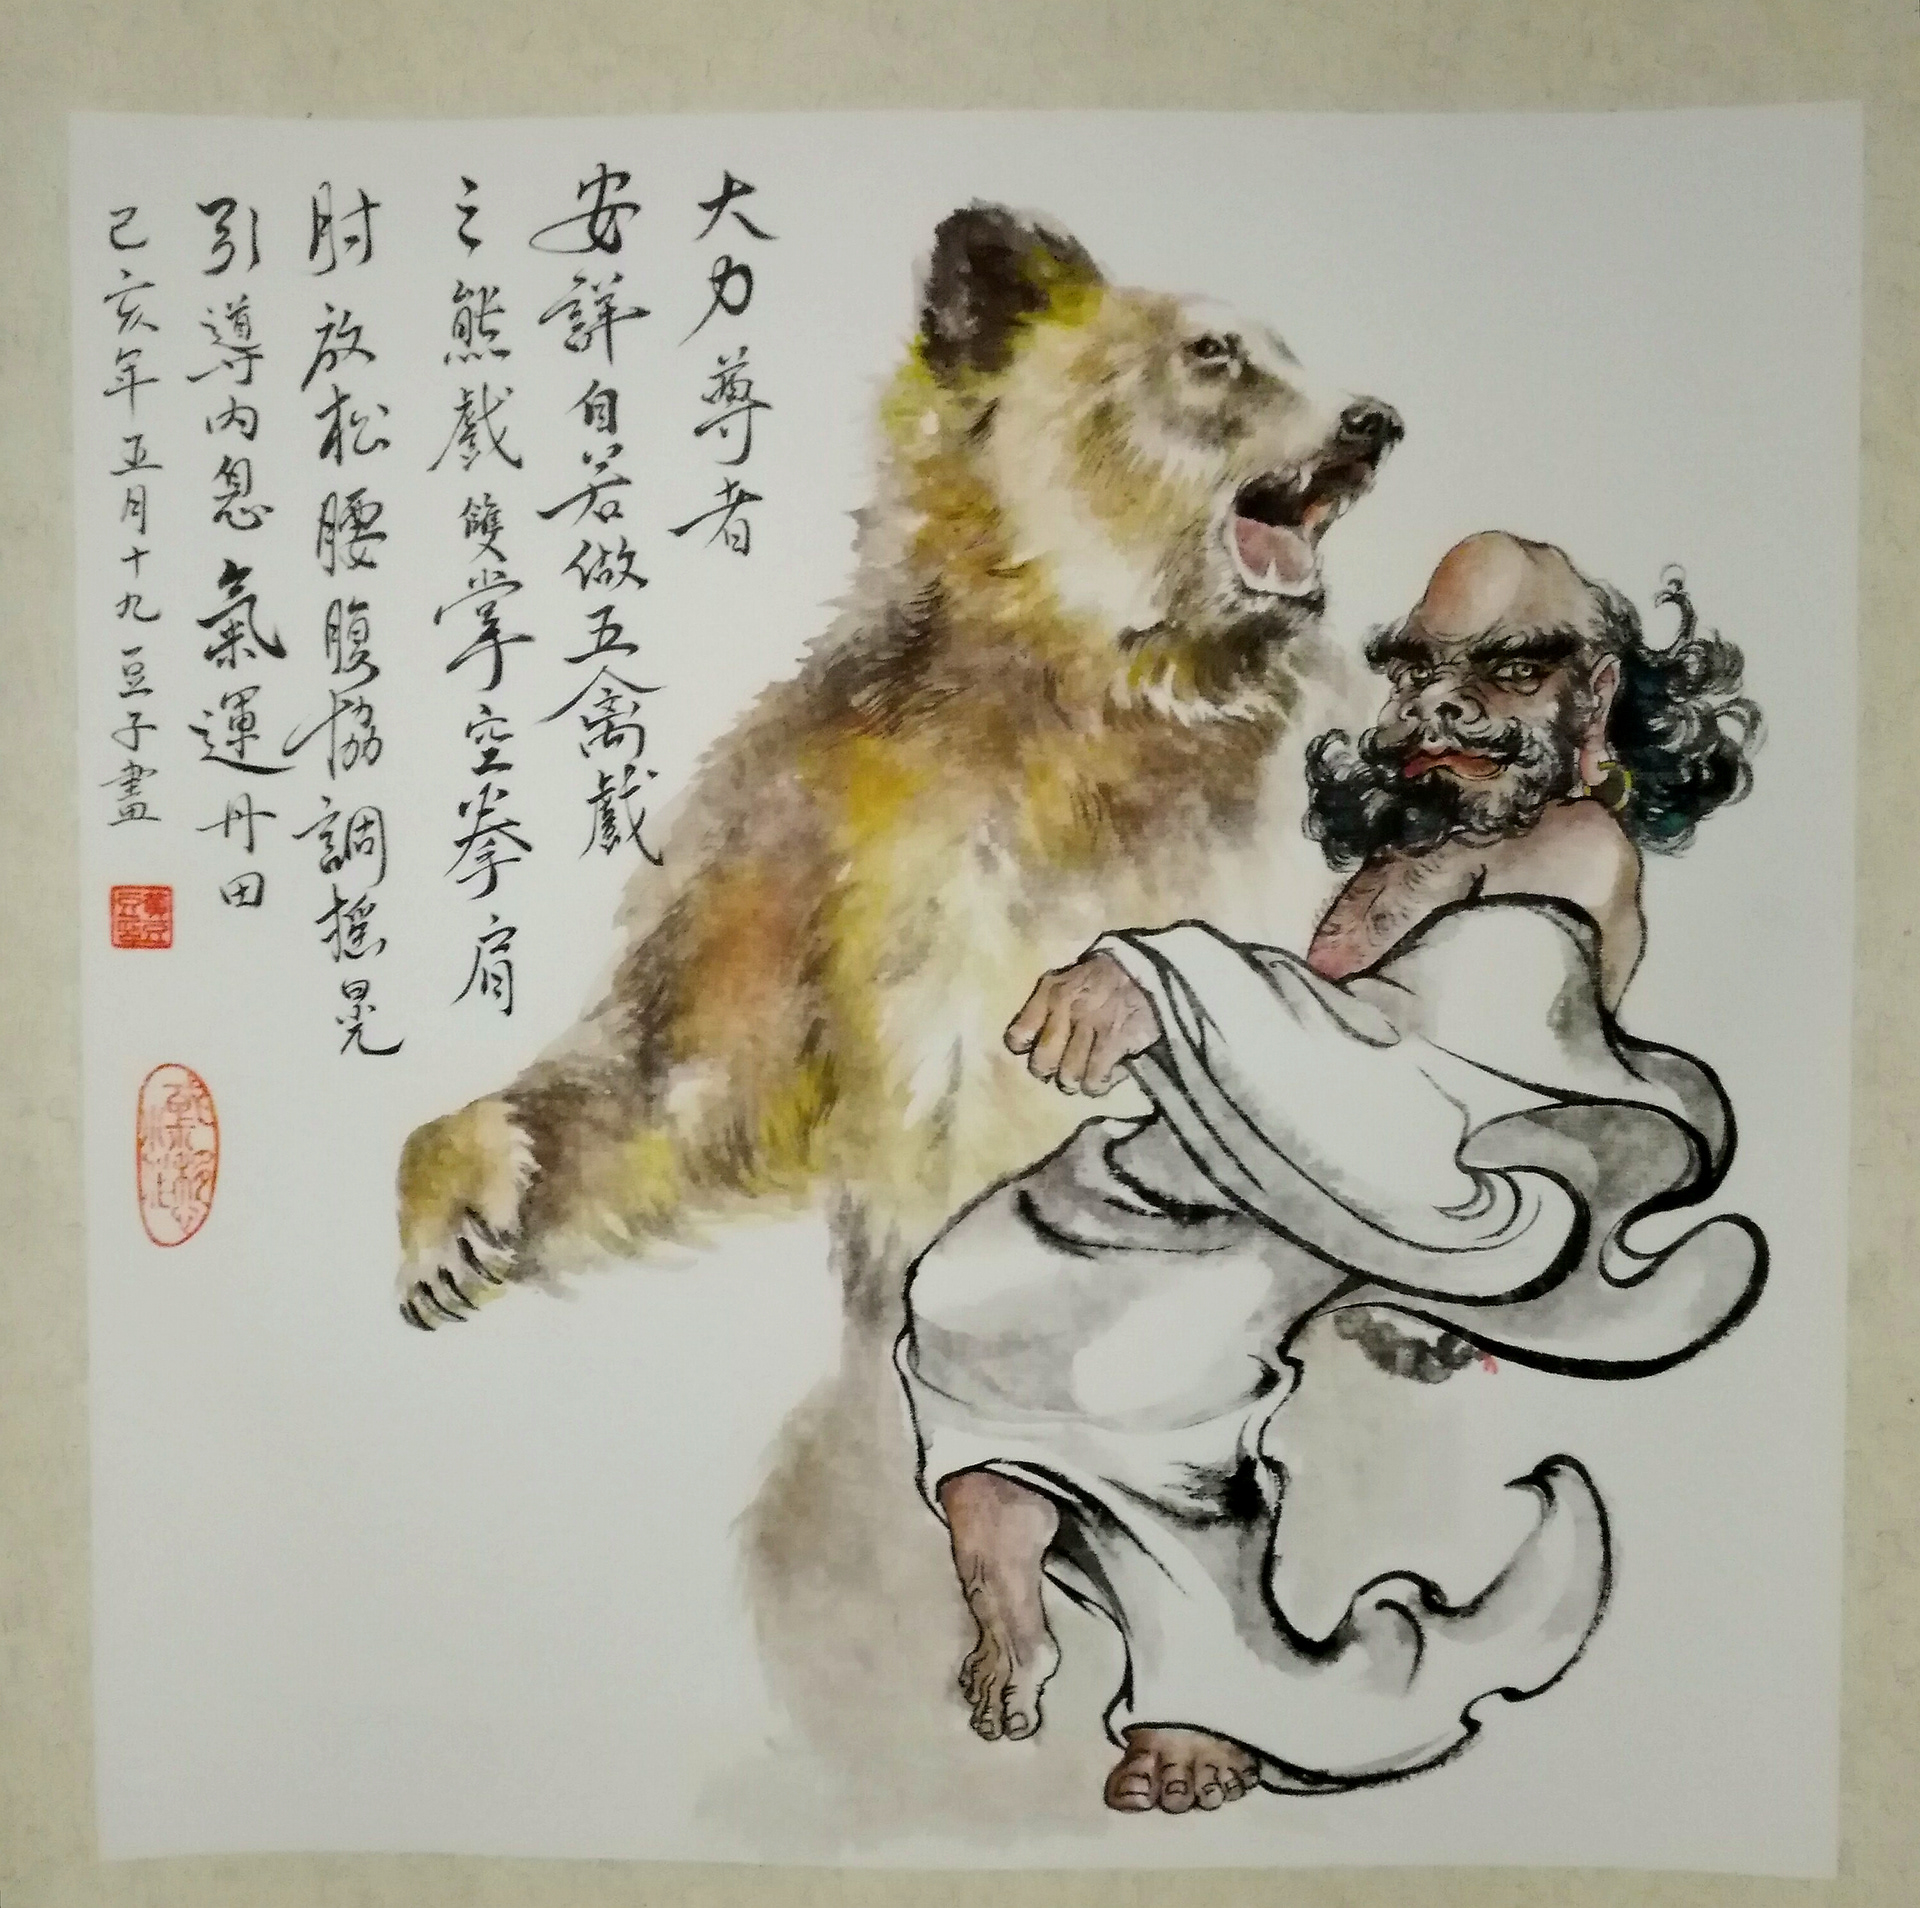 大力尊者
安詳自若做五禽戲
之熊戲雙掌空拳肩
肘放松腰腹協調摇晃
引導内息氣運丹田
己亥年五月十九豆子畫